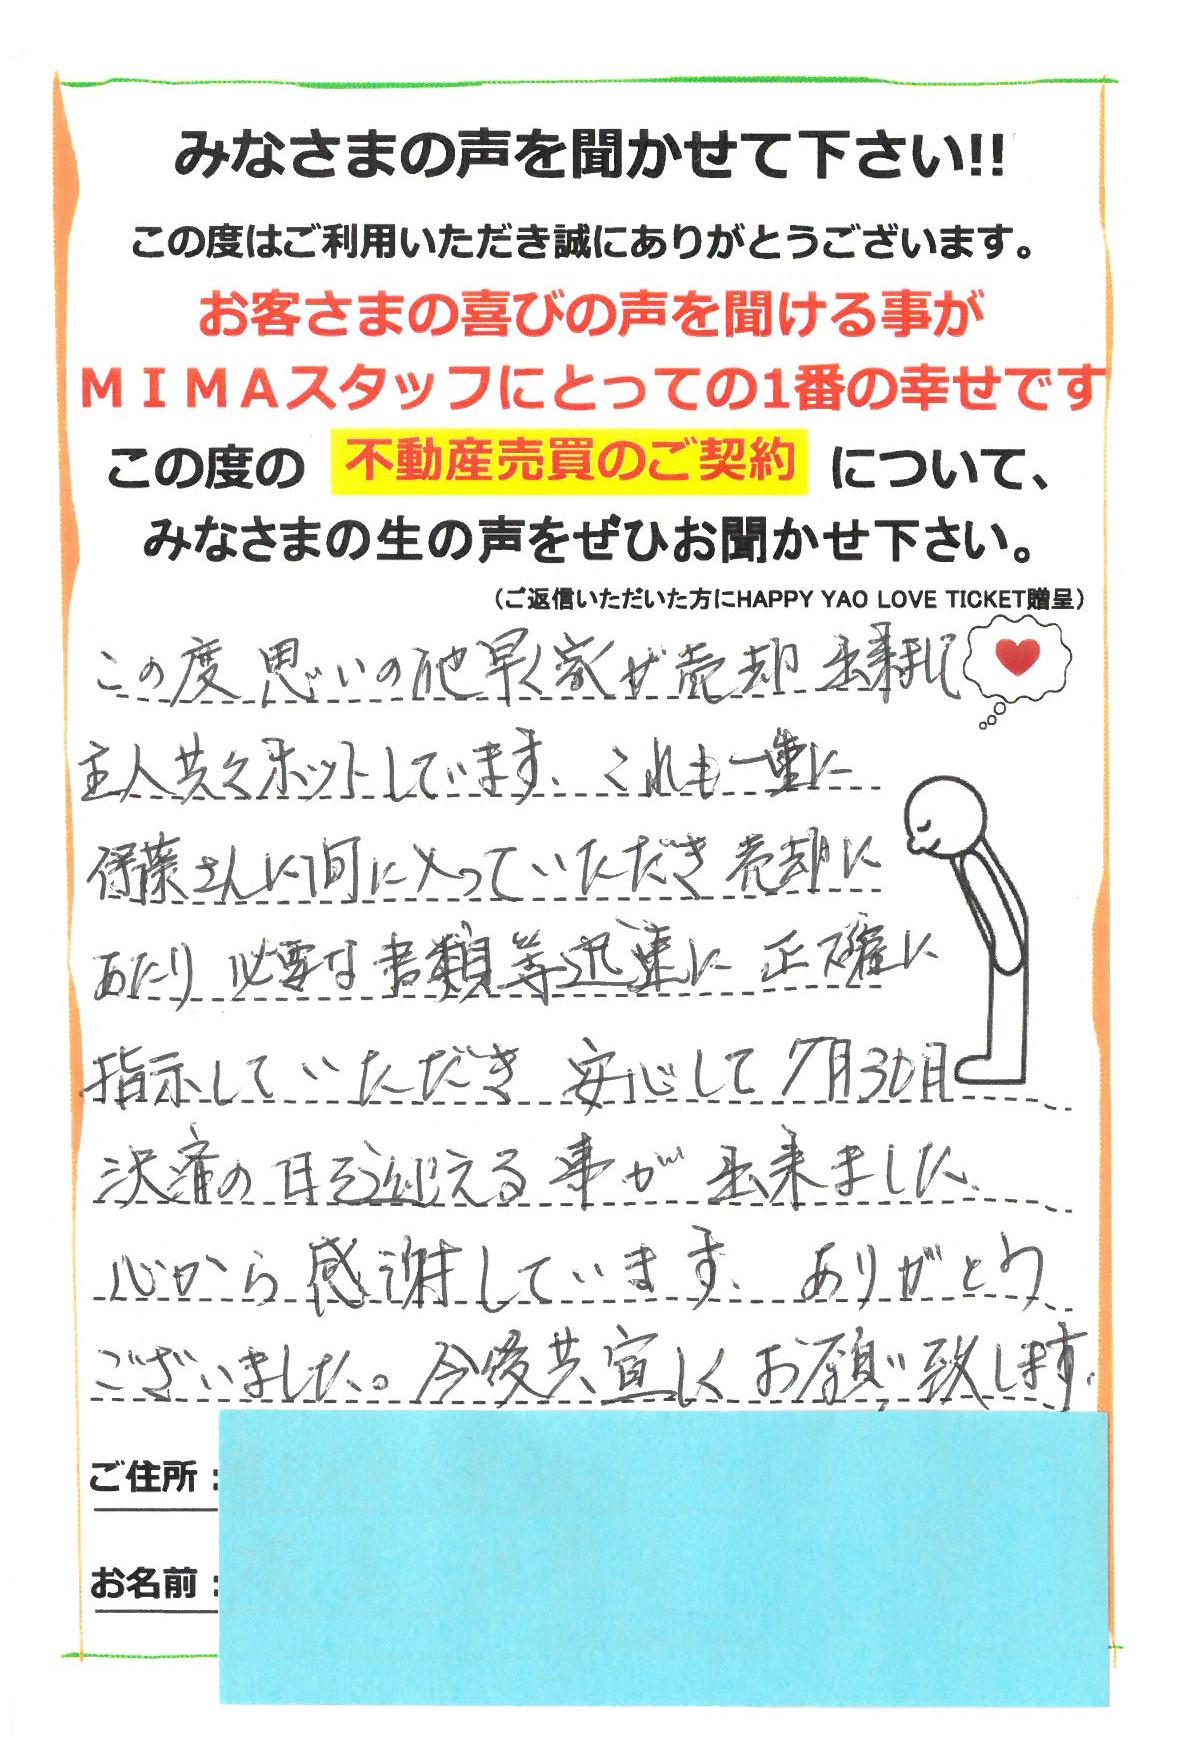 みなさまの声を聞かせて下さい!!
この度はご利用いただき誠にありがとうございます。
お客さまの喜びの声を聞ける事が
ＭＩＭＡスタッフにとっての1番の幸せです
この度の 不動産売買のご契約 について、
みなさまの生の声をぜひお聞かせ下さい。
（ご返信いただいた方にHAPPY YAO LOVE TICKET贈呈）
この度 思いの他早く家が売却 出来まして
主人共々ホットしています。これも一重に
伊藤さんに間に入っていただき 売却に
あたり 必要な書類等迅速に 正確に
指示していただき 安心して 7月30日
決済の日を迎える事が 出来ました。
心から感謝しています。 ありがとう
ございました。今後共宜しく お願い致します。
ご住所：
お名前：